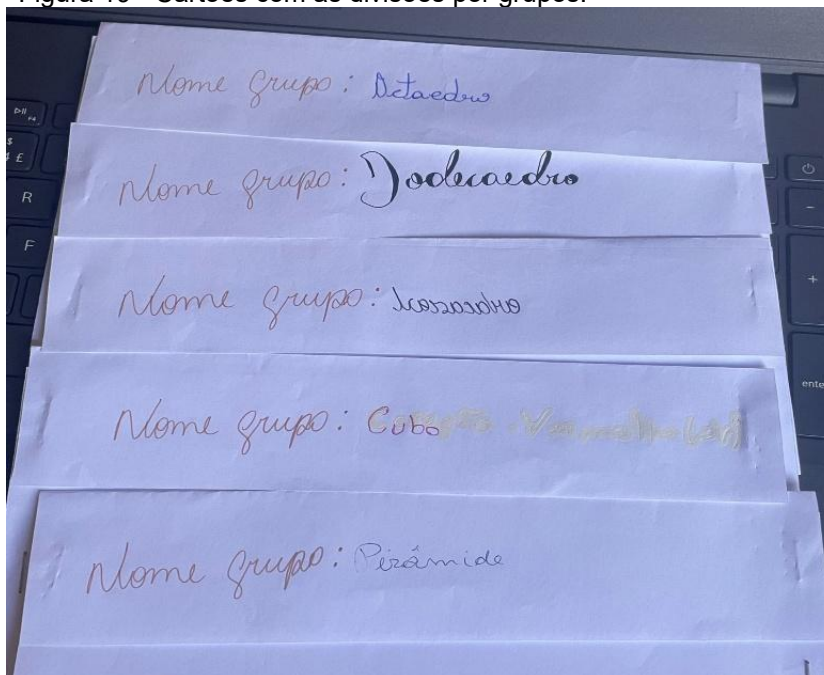 Nome grupo: Octaedro
Nome grupo: Dodecaedro
Nome grupo: Icosaedro
Nome grupo: Cubo
Nome grupo: Pirâmide
R
F
enter